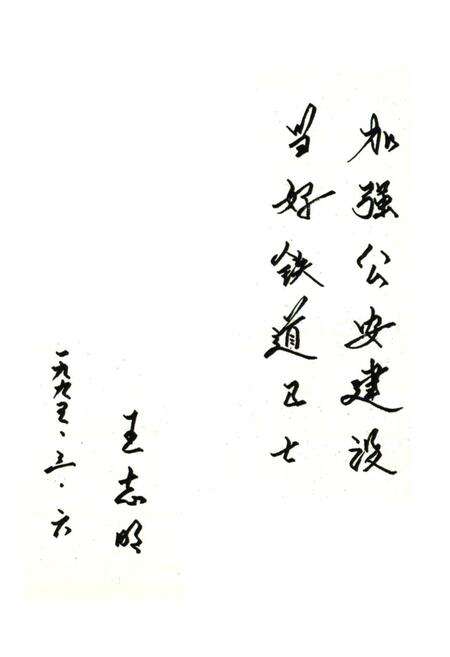 加强公安建设
当好铁道卫士
王志明
一九九五、三、六